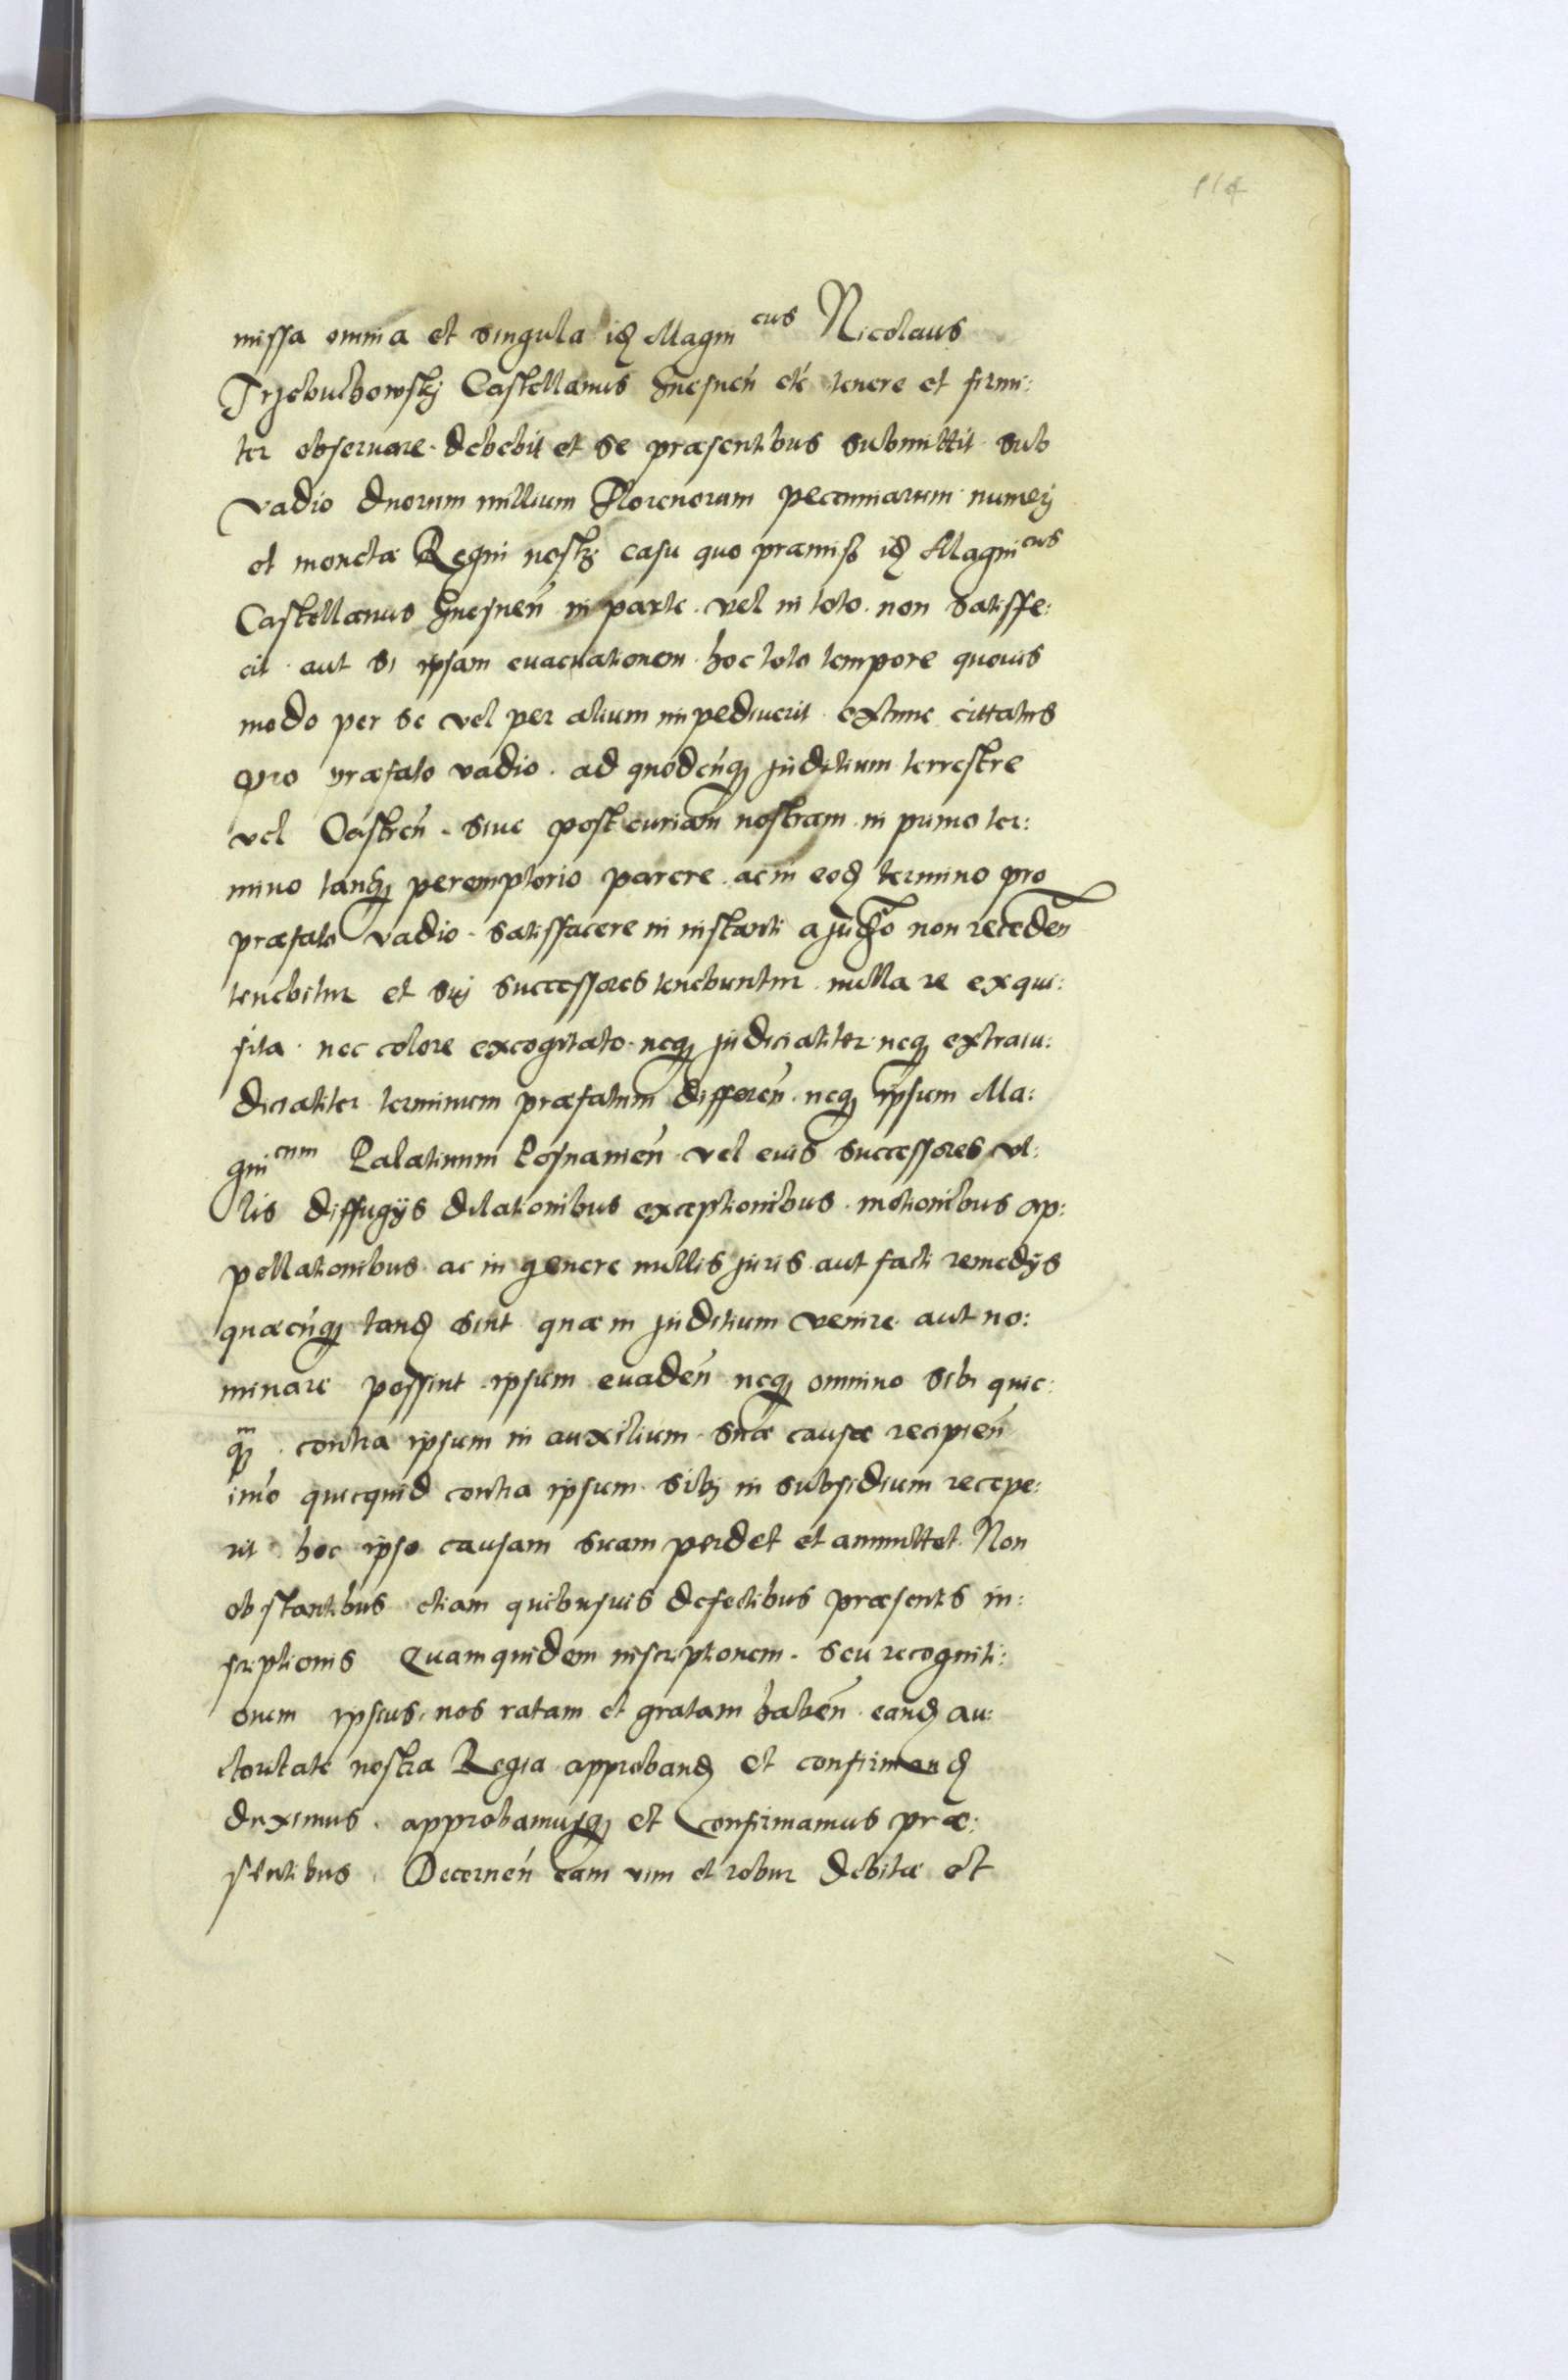 114
missa omnia et singula idẽ Magnicus Nicolaus
Trzebuchowskj Castellanus Gnesneñ etc tenere et firmi:
ter obseruare debebit et se præsentibus submittit sub
vadio duorum millium Florenorum pecuniarum numerj
et monetæ Regni nostrj casu quo præmiss idẽ Magnicus
Castellanus Gnesneñ in parte vel in toto non satisfe:
cit aut si ipsam euacuationem hoc toto tempore quouis
modo per se vel per alium impediuerit extunc cittatus
pro præfato vadio ad quodcunq; juditium terrestre
vel Castreñ siue post curiam nostram in primo ter:
mino tanq; peremptorio parere ac in eodẽ termino pro
præfato vadio satisfacere in instanti a judo non recedeñ
tenebitur et suj successores tenebuntur nulla re exqui:
sita nec colore excogitato neq; judicialiter neq; extraiu:
dicialiter terminum præfatum differeñ neq; ipsum Ma:
gnicum Palatinum Posnanieñ vel eius successores vl:
lis diffugijs dilationibus exceptionibus motionibus ap:
pellationibus ac in genere nullis juris aut facti remedijs
quæcunq; tandẽ sint quæ in juditium venire aut no:
minare possint ipsum euadeñ neq; omnino sibi quic:
qm contra ipsum in auxilium suæ causæ recipieñ
imo quicquid contra ipsum sibj in subsidium recepe:
rit hoc ipso causam suam perdet et ammittet Non
obstantibus etiam quibusuis defectibus præsentis in:
scriptionis Quamquidem inscriptionem seu recogniti:
onem ipsius nos ratam et gratam habeñ eandẽ au:
ctoritate nostra Regia approbandẽ et confirmandẽ
duximus approbamusq; et confirmamus præ:
sentibus Decerneñ eam vim et robur debitæ et